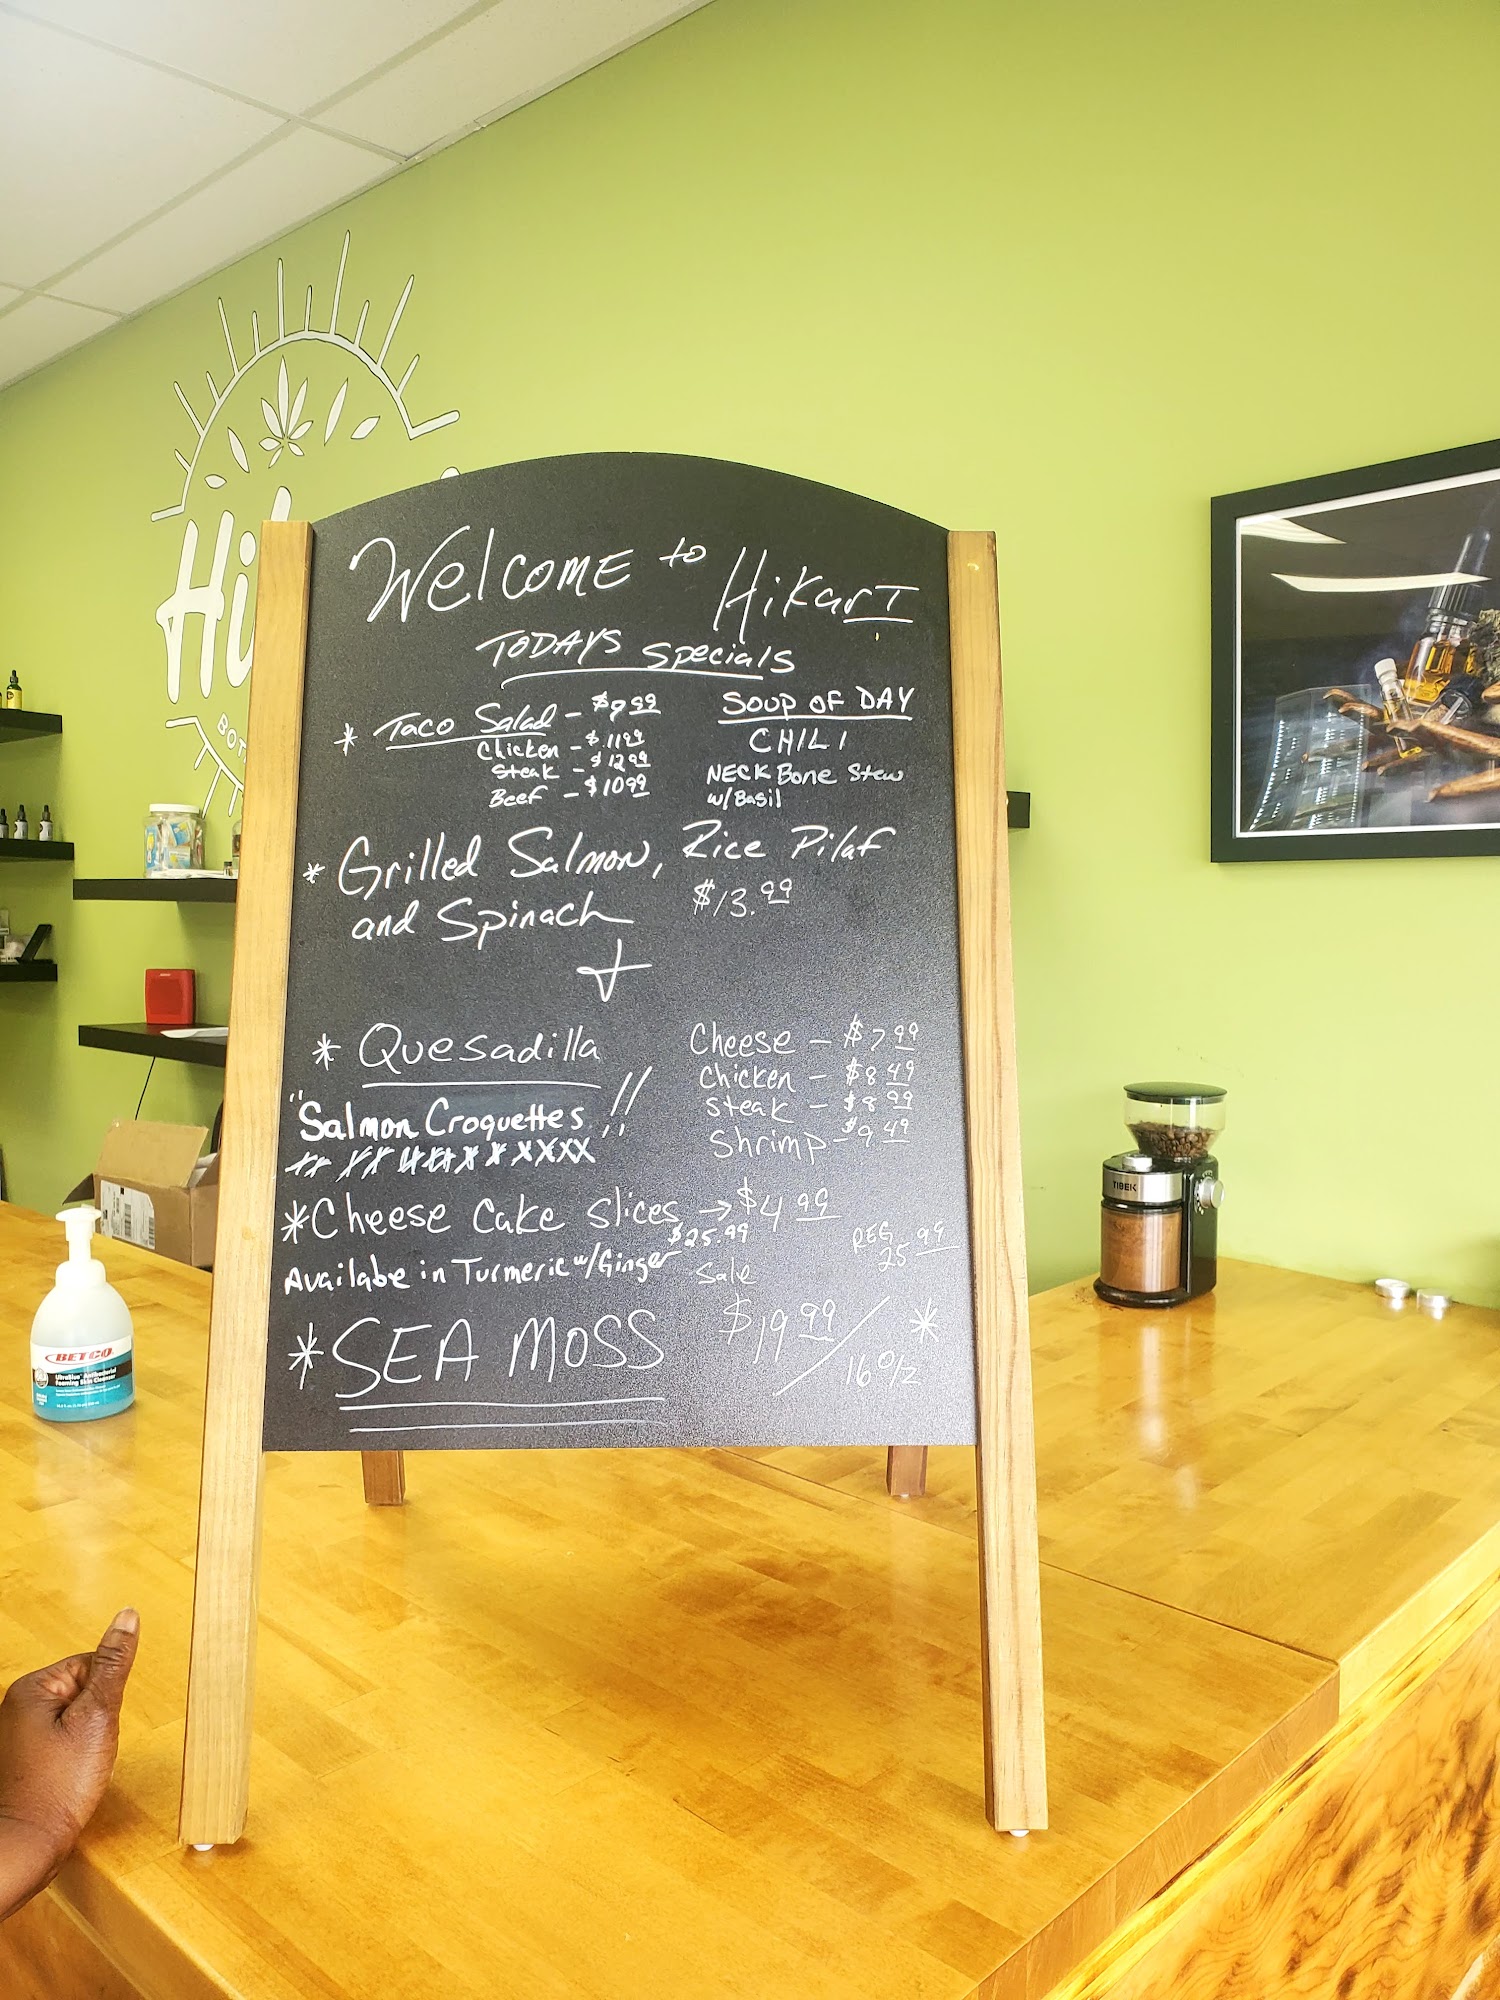 Welcome to Hikari
TODAYS Specials
* Taco Salad - $9.99
Chicken - $11.99
Steak - $12.99
Beef - $10.99
Soup of DAY
CHILI
NECK Bone Stew
w/Basil
* Grilled Salmon, Rice Pilaf
and Spinach
$13.99
* Quesadilla
Cheese - $7.99
Chicken - $8.49
Steak - $8.99
Shrimp - $9.49
"Salmon Croquettes!!
*Cheese Cake slices → $4.99
Available in Turmeric w/Ginger $25.99
REG
25.99
Sale
*SEA MOSS
$19.99/16oz *
Hi
BOT
BETCO
TIBEK